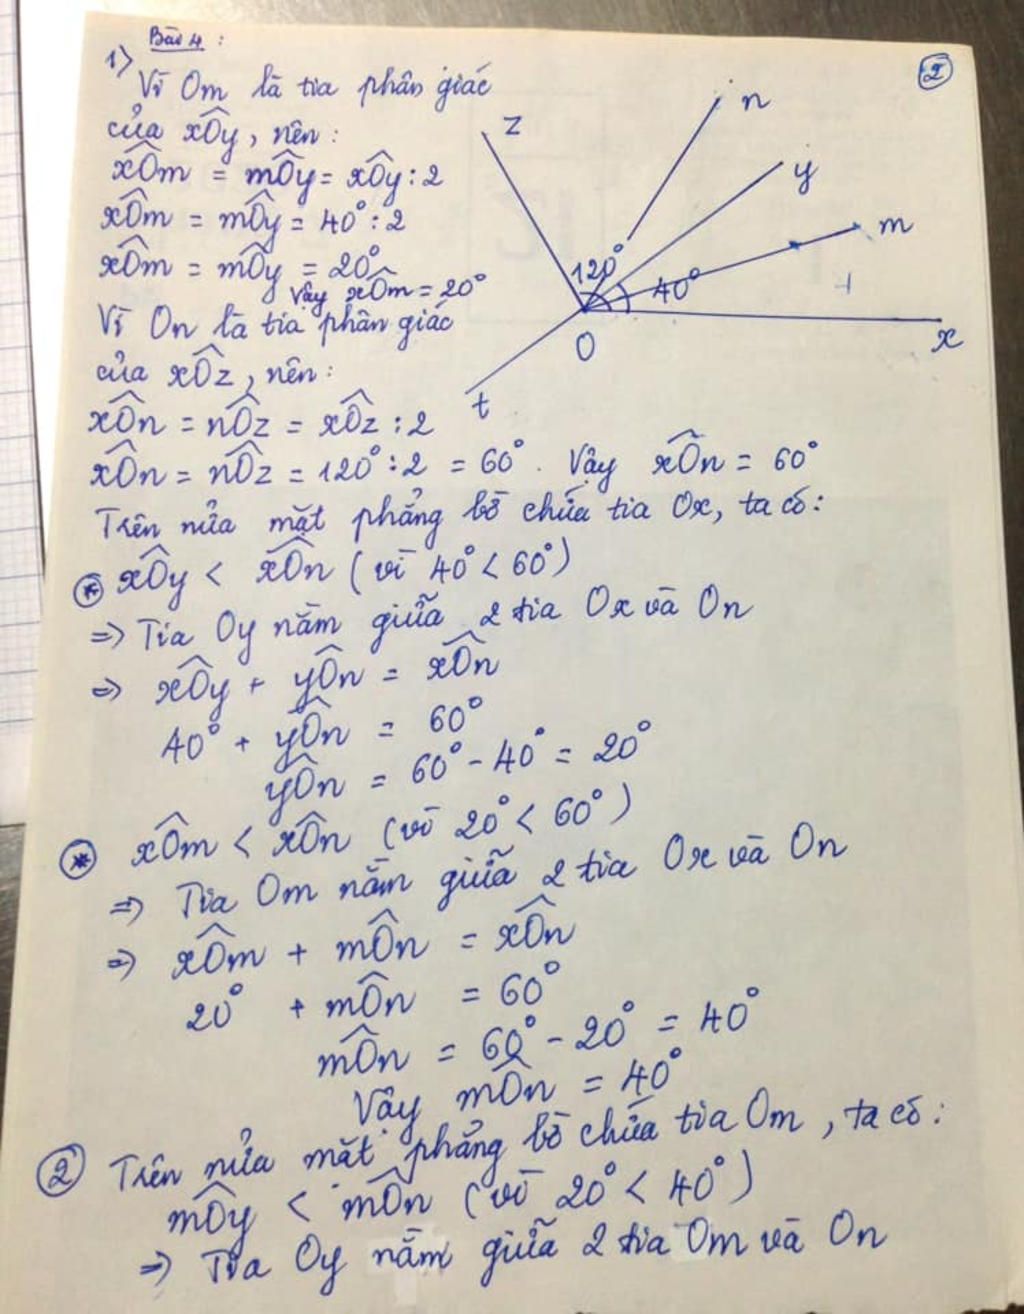 Bài 4 :
②
1)
Vì Om là tia phân giác
của xÔy, nên :
xÔm = mÔy = xÔy : 2
xÔm = mÔy = 40° : 2
xÔm = mÔy = 20°
Vậy xÔm = 20°
Vì On là tia phân giác
của xÔz, nên :
xÔn = nÔz = xÔz : 2
xÔn = nÔz = 120° : 2 = 60°. Vậy xÔn = 60°
z
n
y
m
120°
40°
O
x
t
Trên nửa mặt phẳng bờ chứa tia Ox, ta có :
* xÔy < xÔn (vì 40° < 60°)
=> Tia Oy nằm giữa 2 tia Ox và On
=> xÔy + yÔn = xÔn
40° + yÔn = 60°
yÔn = 60° - 40° = 20°
* xÔm < xÔn (vì 20° < 60°)
=> Tia Om nằm giữa 2 tia Ox và On
=> xÔm + mÔn = xÔn
20° + mÔn = 60°
mÔn = 60° - 20° = 40°
Vậy mÔn = 40°
② Trên nửa mặt phẳng bờ chứa tia Om, ta có :
mÔy < mÔn (vì 20° < 40°)
=> Tia Oy nằm giữa 2 tia Om và On